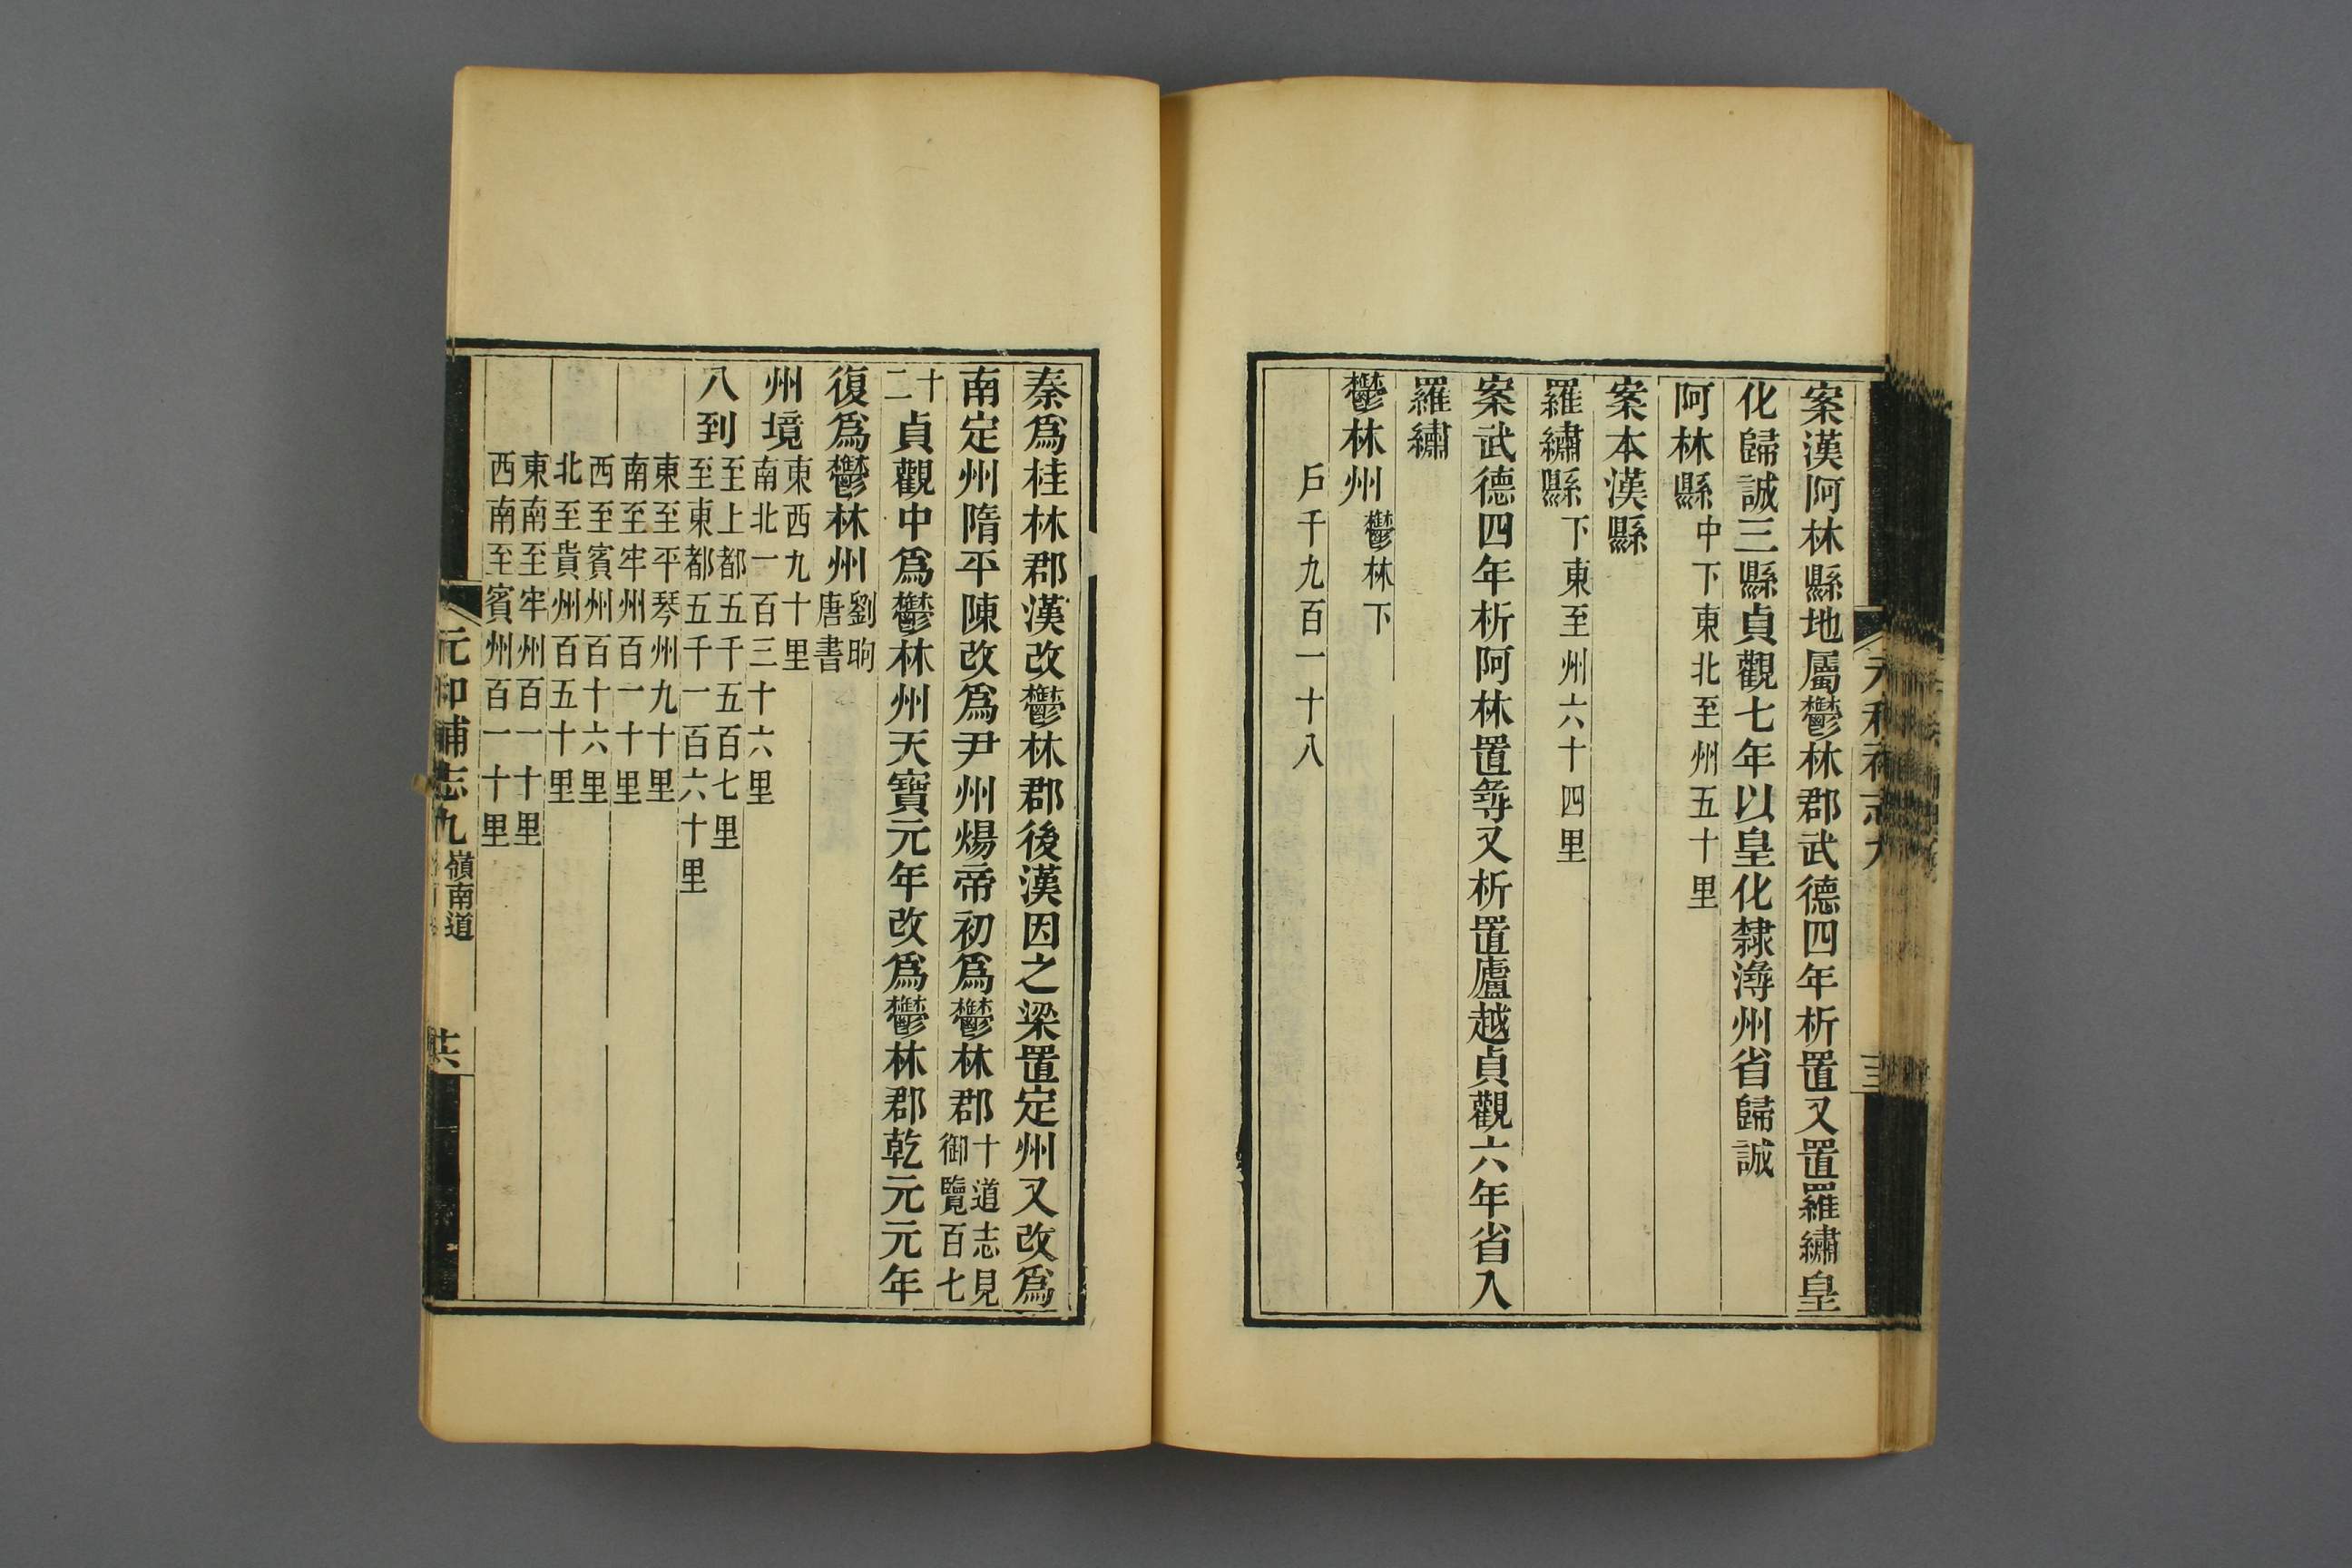 案漢阿林縣地屬鬱林郡武德四年析置又置羅繡皇
化歸誠三縣貞觀七年以皇化隸潯州省歸誠
阿林縣中下東北至州五十里
案本漢縣
羅繡縣下東至州六十四里
案武德四年析阿林置尋又析置廬越貞觀六年省入
羅繡
鬱林州鬱林下
戶千九百一十八
秦爲桂林郡漢改鬱林郡後漢因之梁置定州又改爲
南定州隋平陳改爲尹州煬帝初爲鬱林郡十道志見
御覽百七
十
二貞觀中爲鬱林州天寶元年改爲鬱林郡乾元元年
復爲鬱林州劉昫
唐書
州境東西九十里
南北一百三十六里
八到至上都五千五百七里
至東都五千一百六十里
東至平琴州九十里
南至牢州百一十里
西至賓州百十六里
北至貴州百五十里
東南至牢州百一十里
西南至賓州百一十里
元和補志九 嶺南道